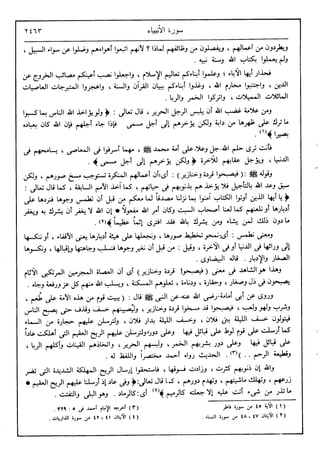 سورة الأنبياء ٢٤٦٣
ويطردون من أعمالهم ، ويفصلون من وظائفهم لماذا ؟ لأنهم اتبعوا أهواءهم وضلوا عن سواء السبيل ،
ولم يعملوا بكتاب الله وسنة نبيه .
فحذار أيها الآباء ؛ وعلموا أبناءكم تعاليم الإسلام ، واجعلوا نصب أعينكم مصائب الخروج عن
الدين ، واجتنبوا محارم الله ، وغذوا أبناءكم ببيان القرآن والسنة ، واهجروا المتبرجات العاصيات
المائلات المميلات ، واتركوا الخمر والربا .
ومن علامة غضب الله أن يلبس الرجل الحرير ، قال تعالى : ﴿ ولو يؤاخذ الله الناس بما كسبوا
ما ترك على ظهرها من دابة ولكن يؤخرهم إلى أجل مسمى فإذا جاء أجلهم فإن الله كان بعباده
بصيرا ﴾(١) .
فأنت ترى حلم الله جل وعلا على أمة محمد ﷺ ، مهما أسرفوا فى المعاصى ، يسامحهم فى
الدنيا ، ويؤجل عقابهم للآخرة ﴿ ولكن يؤخرهم إلى أجل مسمى ﴾ .
وقوله ﷺ : ( فيصبحوا قردة وخنازير ) : أى، أن أعمالهم المنكرة تستوجب مسخ صورهم ، ولكن
سبق وعد الله بالتأجيل فلا يؤخذهم بذنوبهم فى حياتهم ، كما أخذ الأمم السابقة ، كما قال تعالى :
﴿ يا أيها الذين أوتوا الكتاب آمنوا بما نزلنا مصدقاً لما معكم من قبل أن نطمس وجوها فنردها على
أدبارها أو نلعنهم كما لعنا أصحاب السبت وكان أمر الله مفعولاً * إن الله لا يغفر أن يشرك به ويغفر
ما دون ذلك لمن يشاء ومن يشرك بالله فقد افترى إثماً عظيماً ﴾(٢) .
ومعنى نطمس : أى، نمحو تخطيط صورها ، ونجعلها على هيئة أدبارها يعنى الأقفاء ، أو ننكسها
إلى ورائها فى الدنيا أو فى الآخرة ، وقيل : من قبل أن نغير وجوها فنسلب وجاهتها وإقبالها ، ونكسوها
الصغار والإدبار . قاله البيضاوى .
وهذا هو الشاهد فى معنى ( فيصبحوا قردة وخنازير ) أى أن العصاة المجرمين المرتكبى الآثام
يصبحون فى ذل وصغار ، وحقارة ، ودناءة ، تعلوهم المسكنة ، ويسلب الله منهم كل عز ورفعة وجاه .
وروى عن أبى أمامة رضى الله عنه عن النبى ﷺ قال : ( يبيت قوم من هذه الأمة على طُعم ،
وشرب ولهو ولعب ، فيصبحوا قد مسخوا قردة وخنازير ، وليصيبنهم خسف وقذف حتى يصبح الناس
فيقولون خسف الليلة ببنى فلان ، وخسف الليلة بدار فلان ، ولترسلن عليهم حجارة من السماء
كما أرسلت على قوم لوط على قبائل فيها وعلى دور، ولترسلن عليهم الريح العقيم التى أهلكت عاداً
على قبائل فيها وعلى دور بشربهم الخمر ، ولبسهم الحرير ، واتخاذهم القينات وأكلهم الربا ،
وقطيعة الرحم .. )(٣) . الحديث رواه أحمد مختصراً واللفظ له .
والله إن ذنوبهم كثرت ، وزادت فسوقها ، فاستحقوا إرسال الريح المهلكة الشديدة التى تضر
زرعهم ، وتهلك ماشيتهم ، وتهدم دورهم ، كما قال تعالى : ﴿ وفى عاد إذ أرسلنا عليهم الريح العقيم *
ما تذر من شىء أتت عليه إلا جعلته كالرميم ﴾(٤) أى: كالرماد . وهو البلى والتفتت .
(١) الآية ٤٥ من سورة فاطر . (٣) أخرجه الإمام أحمد فى ٥ : ٣٢٩ .
(٢) الآيتان ٤٧ ، ٤٨ من سورة النساء . (٤) الآيتان ٤١ ، ٤٢ من سورة الذاريات .